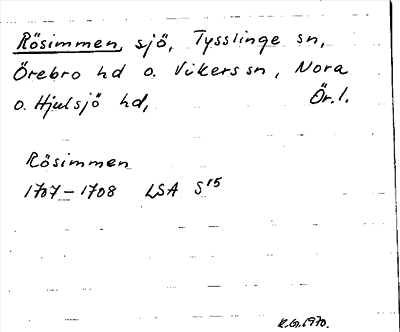 Rösimmen, sjö, Tysslinge sn,
Örebro hd o. Vikers sn, Nora
o. Hjulsjö hd, Ör. l.
Rösimmen
1707-1708 LSA S15
K.G. 1970.